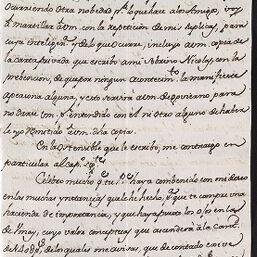 ocurriendo otra nobedad pª lo que hace a los Amigos, voy
à marvillar âvm. con la repeticion de mis suplicas, para
cuya inteligenª y de lo que ocurre, incluyo avm. copia de
la carta privada que escribo ami Sobrino Nicolas con la
prebencion, de que por ningun acontecimtº la manifieste
apersona alguna, y esto servirá avm. de govierno, para
no darse pr. entendido con el ni otro alguno de haber
le yo Remitido avm. dha copia.
En la ostensible que le escribo, me contraigo en
particular al capº sigte
Celebro mucho qe tu Pe haya combenido con mi deseo
en las muchas ynstancias que le he hecho, pª que te compre una
hacienda de importancia, y que haya puesto los ojos en las
de Ymay, cuyo valor conceptuas que ascenderá a la Cantd
de 140 ps, de los quales me avisas, que de contado se ne